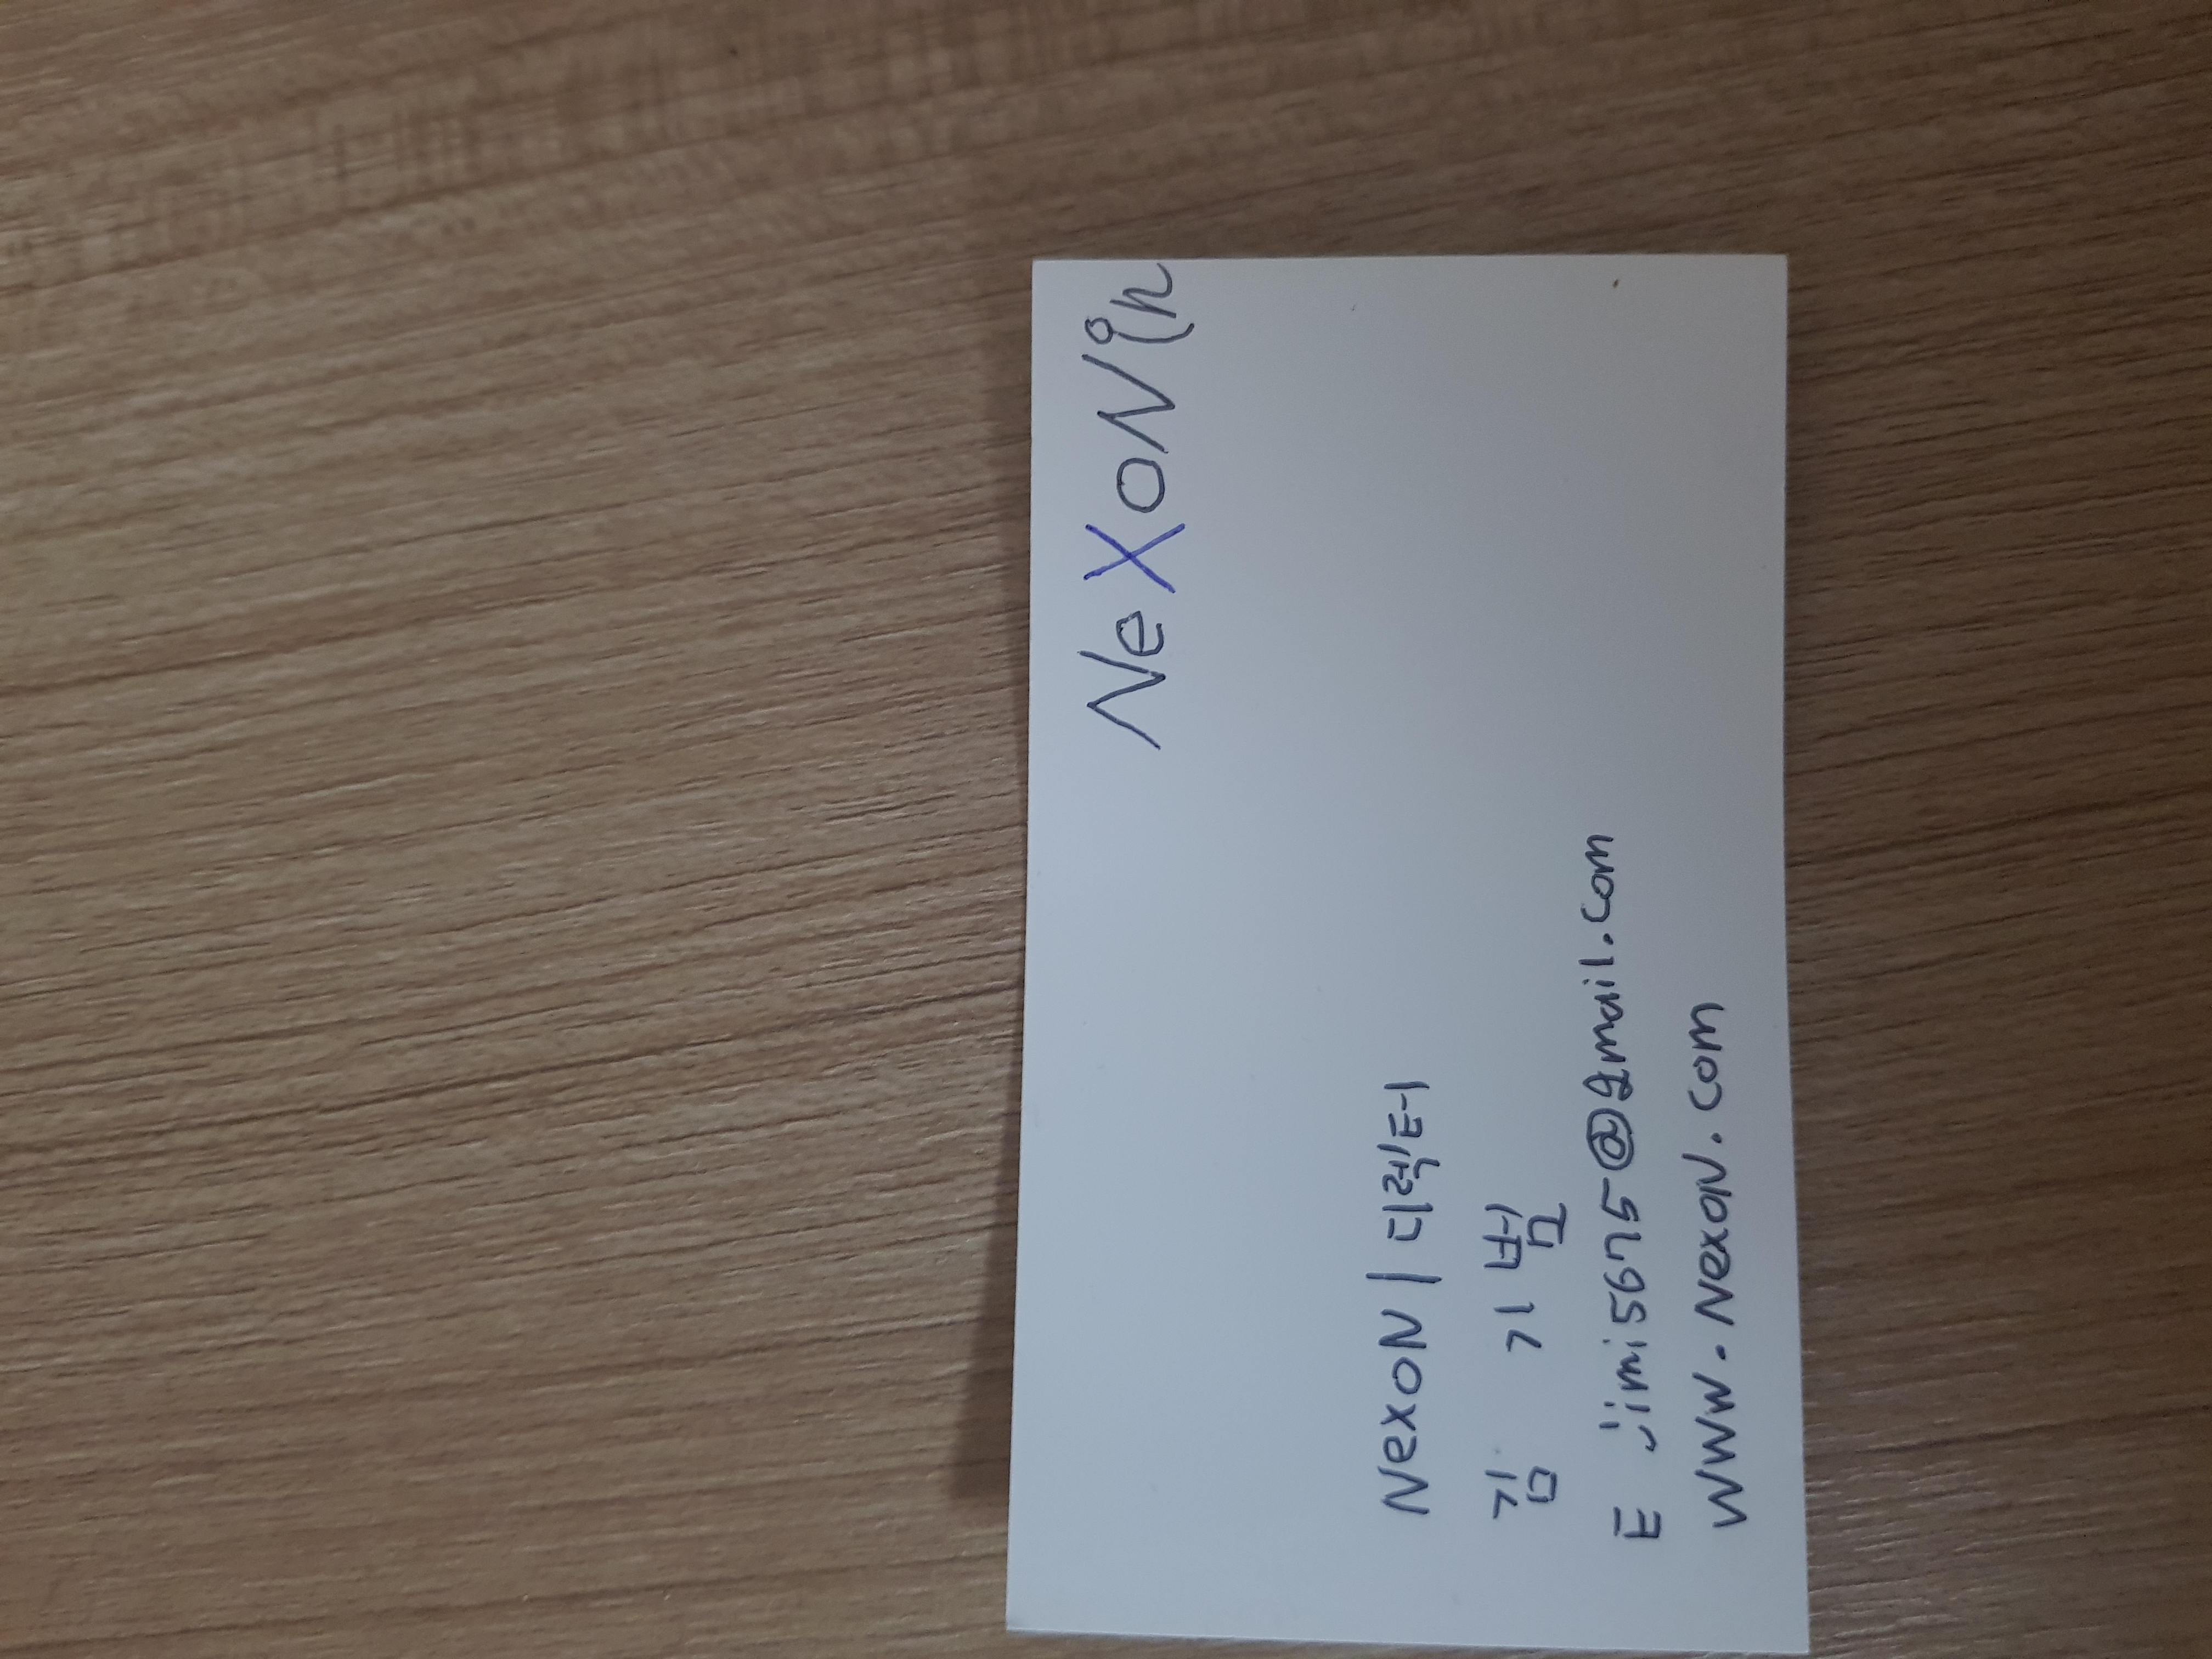 NeXoNin
NexoN | 디렉터
김 기범
E jimi5675@gmail.com
WWW.NexoN.com